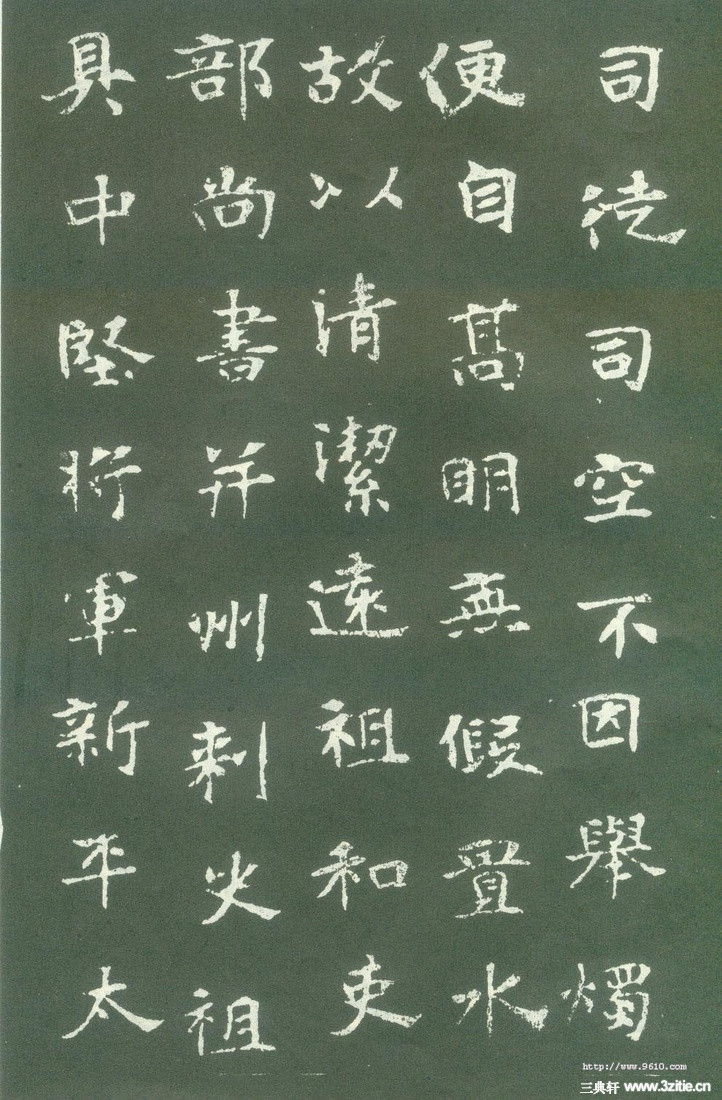 司徒司空不因舉燭
便自高明無假置水
故以清潔遠祖和吏
部尚書并州刺史祖
具中堅將軍新平太
http://www.9610.com
三典轩 www.3zitie.cn